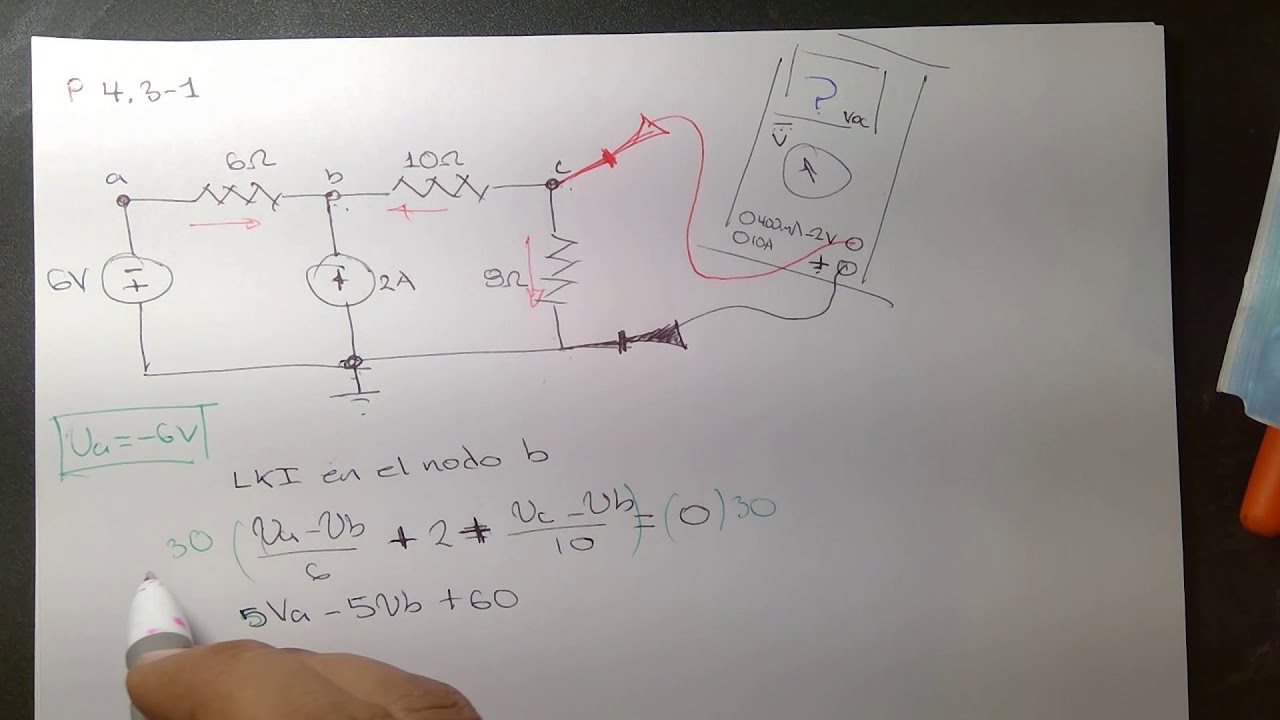 P 4.3-1
a 6Ω b 10Ω c
6V
2A
9Ω
?
V
0400mA-2V
010A
Va=-6V
LKI en el nodo b
30 (Va-Vb/6 + 2 + Vc-Vb/10) = (0)30
5Va - 5Vb + 60